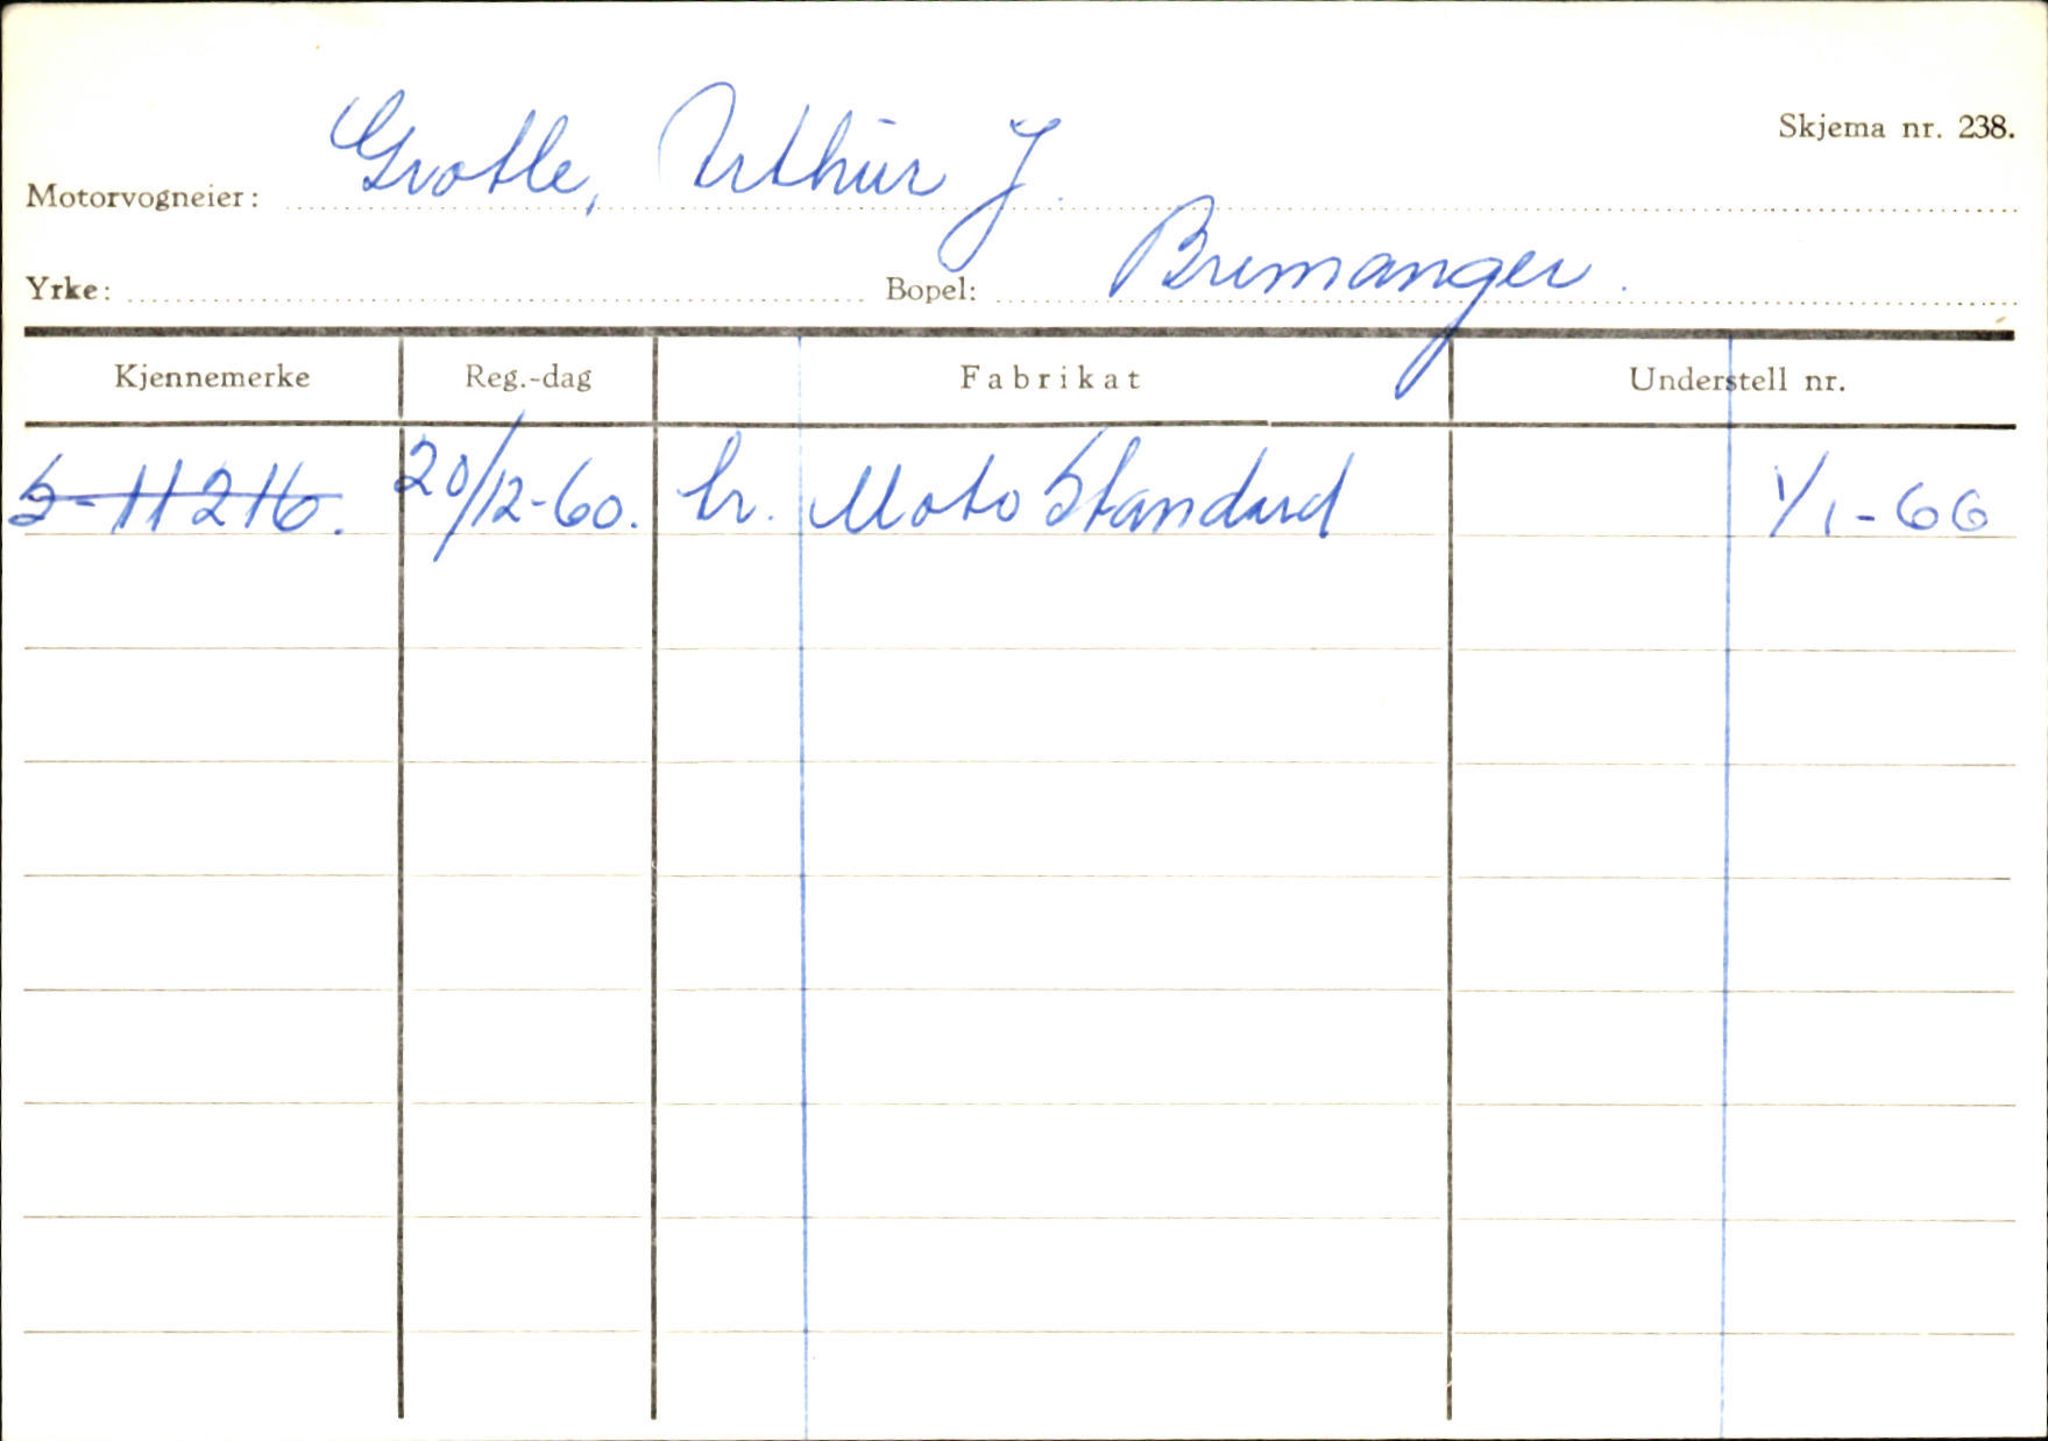 Skjema nr. 238.
Motorvogneier: Grotle, Arthur J.
Yrke: Bopel: Bremanger.
Kjennemerke Reg.-dag Fabrikat Understell nr.
S-11216. 20/12-60. Moto Standard 1/1-66